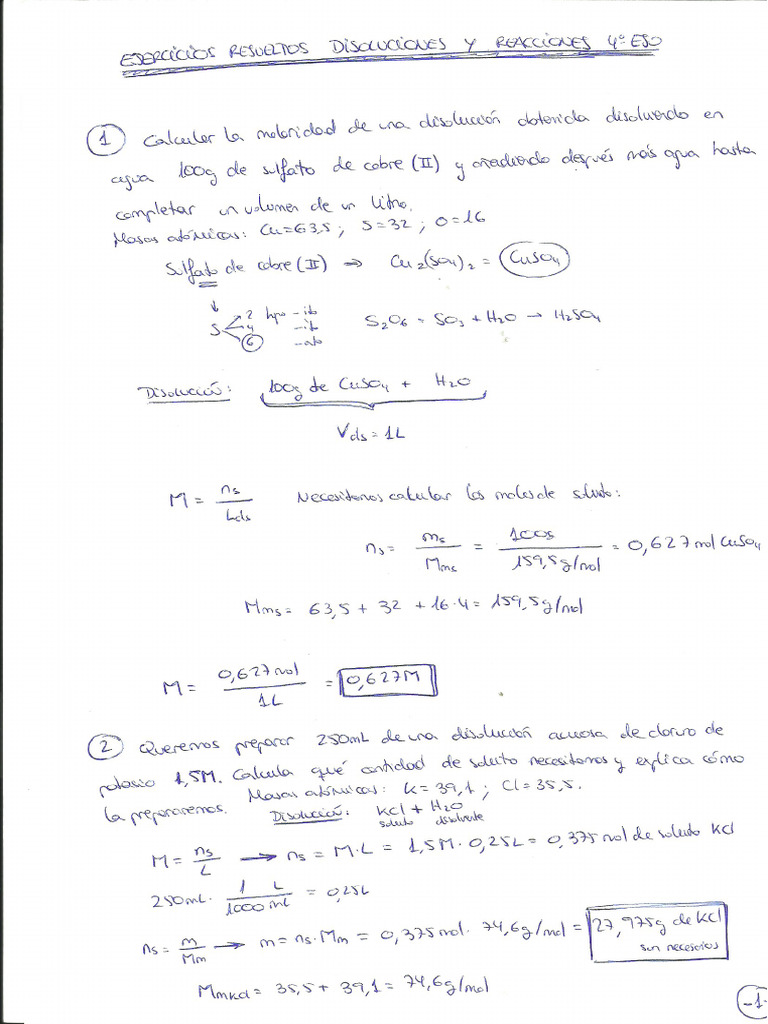 EJERCICIOS RESUELTOS DISOLUCIONES Y REACCIONES 4º ESO
1 Calcular la molaridad de una disolución obtenida disolviendo en
agua 100g de sulfato de cobre (II) y añadiendo después más agua hasta
completar un volumen de un litro.
Masas atómicas: Cu=63,5; S=32; O=16
Sulfato de cobre (II) → Cu₂(SO₄)₂ = CuSO₄
S 2 hipo -ito
4 -ito
6 -ato
S₂O₆ = SO₃ + H₂O → H₂SO₄
Disolución: 100g de CuSO₄ + H₂O
Vds = 1L
M = ns / Lds Necesitamos calcular los moles de soluto:
ns = ms / Mms = 100g / 159,5g/mol = 0,627 mol CuSO₄
Mms = 63,5 + 32 + 16·4 = 159,5g/mol
M = 0,627 mol / 1L = 0,627M
2 Queremos preparar 250mL de una disolución acuosa de cloruro de
potasio 1,5M. Calcula qué cantidad de soluto necesitamos y explica cómo
la prepararemos. Masas atómicas: K=39,1; Cl=35,5.
Disolución: KCl + H₂O
soluto disolvente
M = ns / L → ns = M·L = 1,5M · 0,25L = 0,375 mol de soluto KCl
250mL · 1 L / 1000 mL = 0,25L
ns = m / Mm → m = ns·Mm = 0,375 mol · 74,6g/mol = 27,975g de KCl
son necesarios
MmKCl = 35,5 + 39,1 = 74,6g/mol
-1-